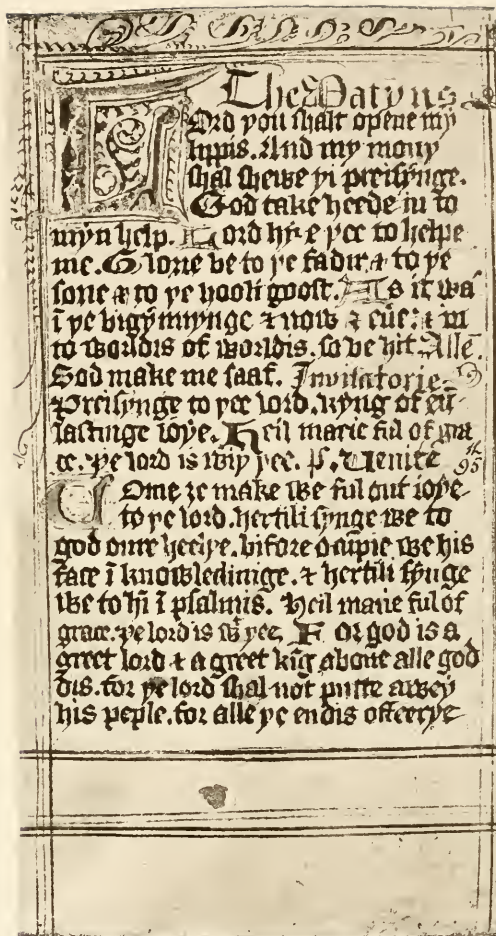 The Matyns
Lord you shalt opene my
lippis. And my mouy
shal shewe yi preisynge.
God take heede in to
myn help. Lord hye yee to helpe
me. Glorie be to ye fadir & to ye
sone & to ye hooli goost. As it wa
ī ye bigynnynge & now & eūe: & in
to worldis of worldis. so be hit. Alle
God make me saaf. Invitatorie
Preisynge to yee lord. kyng of eū-
lastinge ioye. Heil marie ful of gra
ce. ye lord is wiy yee. Ps. Uenite 95
Come ȝe make we ful out ioye
to ye lord. hertili synge we to
god oure heelye. bifore ocupie we his
face ī knowledinige. & hertili synge
we to hī ī psalmis. Heil marie ful of
grace. ye lord is wt yee. For god is a
greet lord & a greet kīg aboue alle god
dis. for ye lord shal not putte awey
his peple. for alle ye endis of eerye